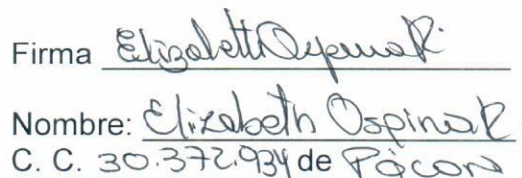 Firma Elizabeth Ospina R
Nombre: Elizabeth Ospina R
C. C. 30.372.934 de Pácora